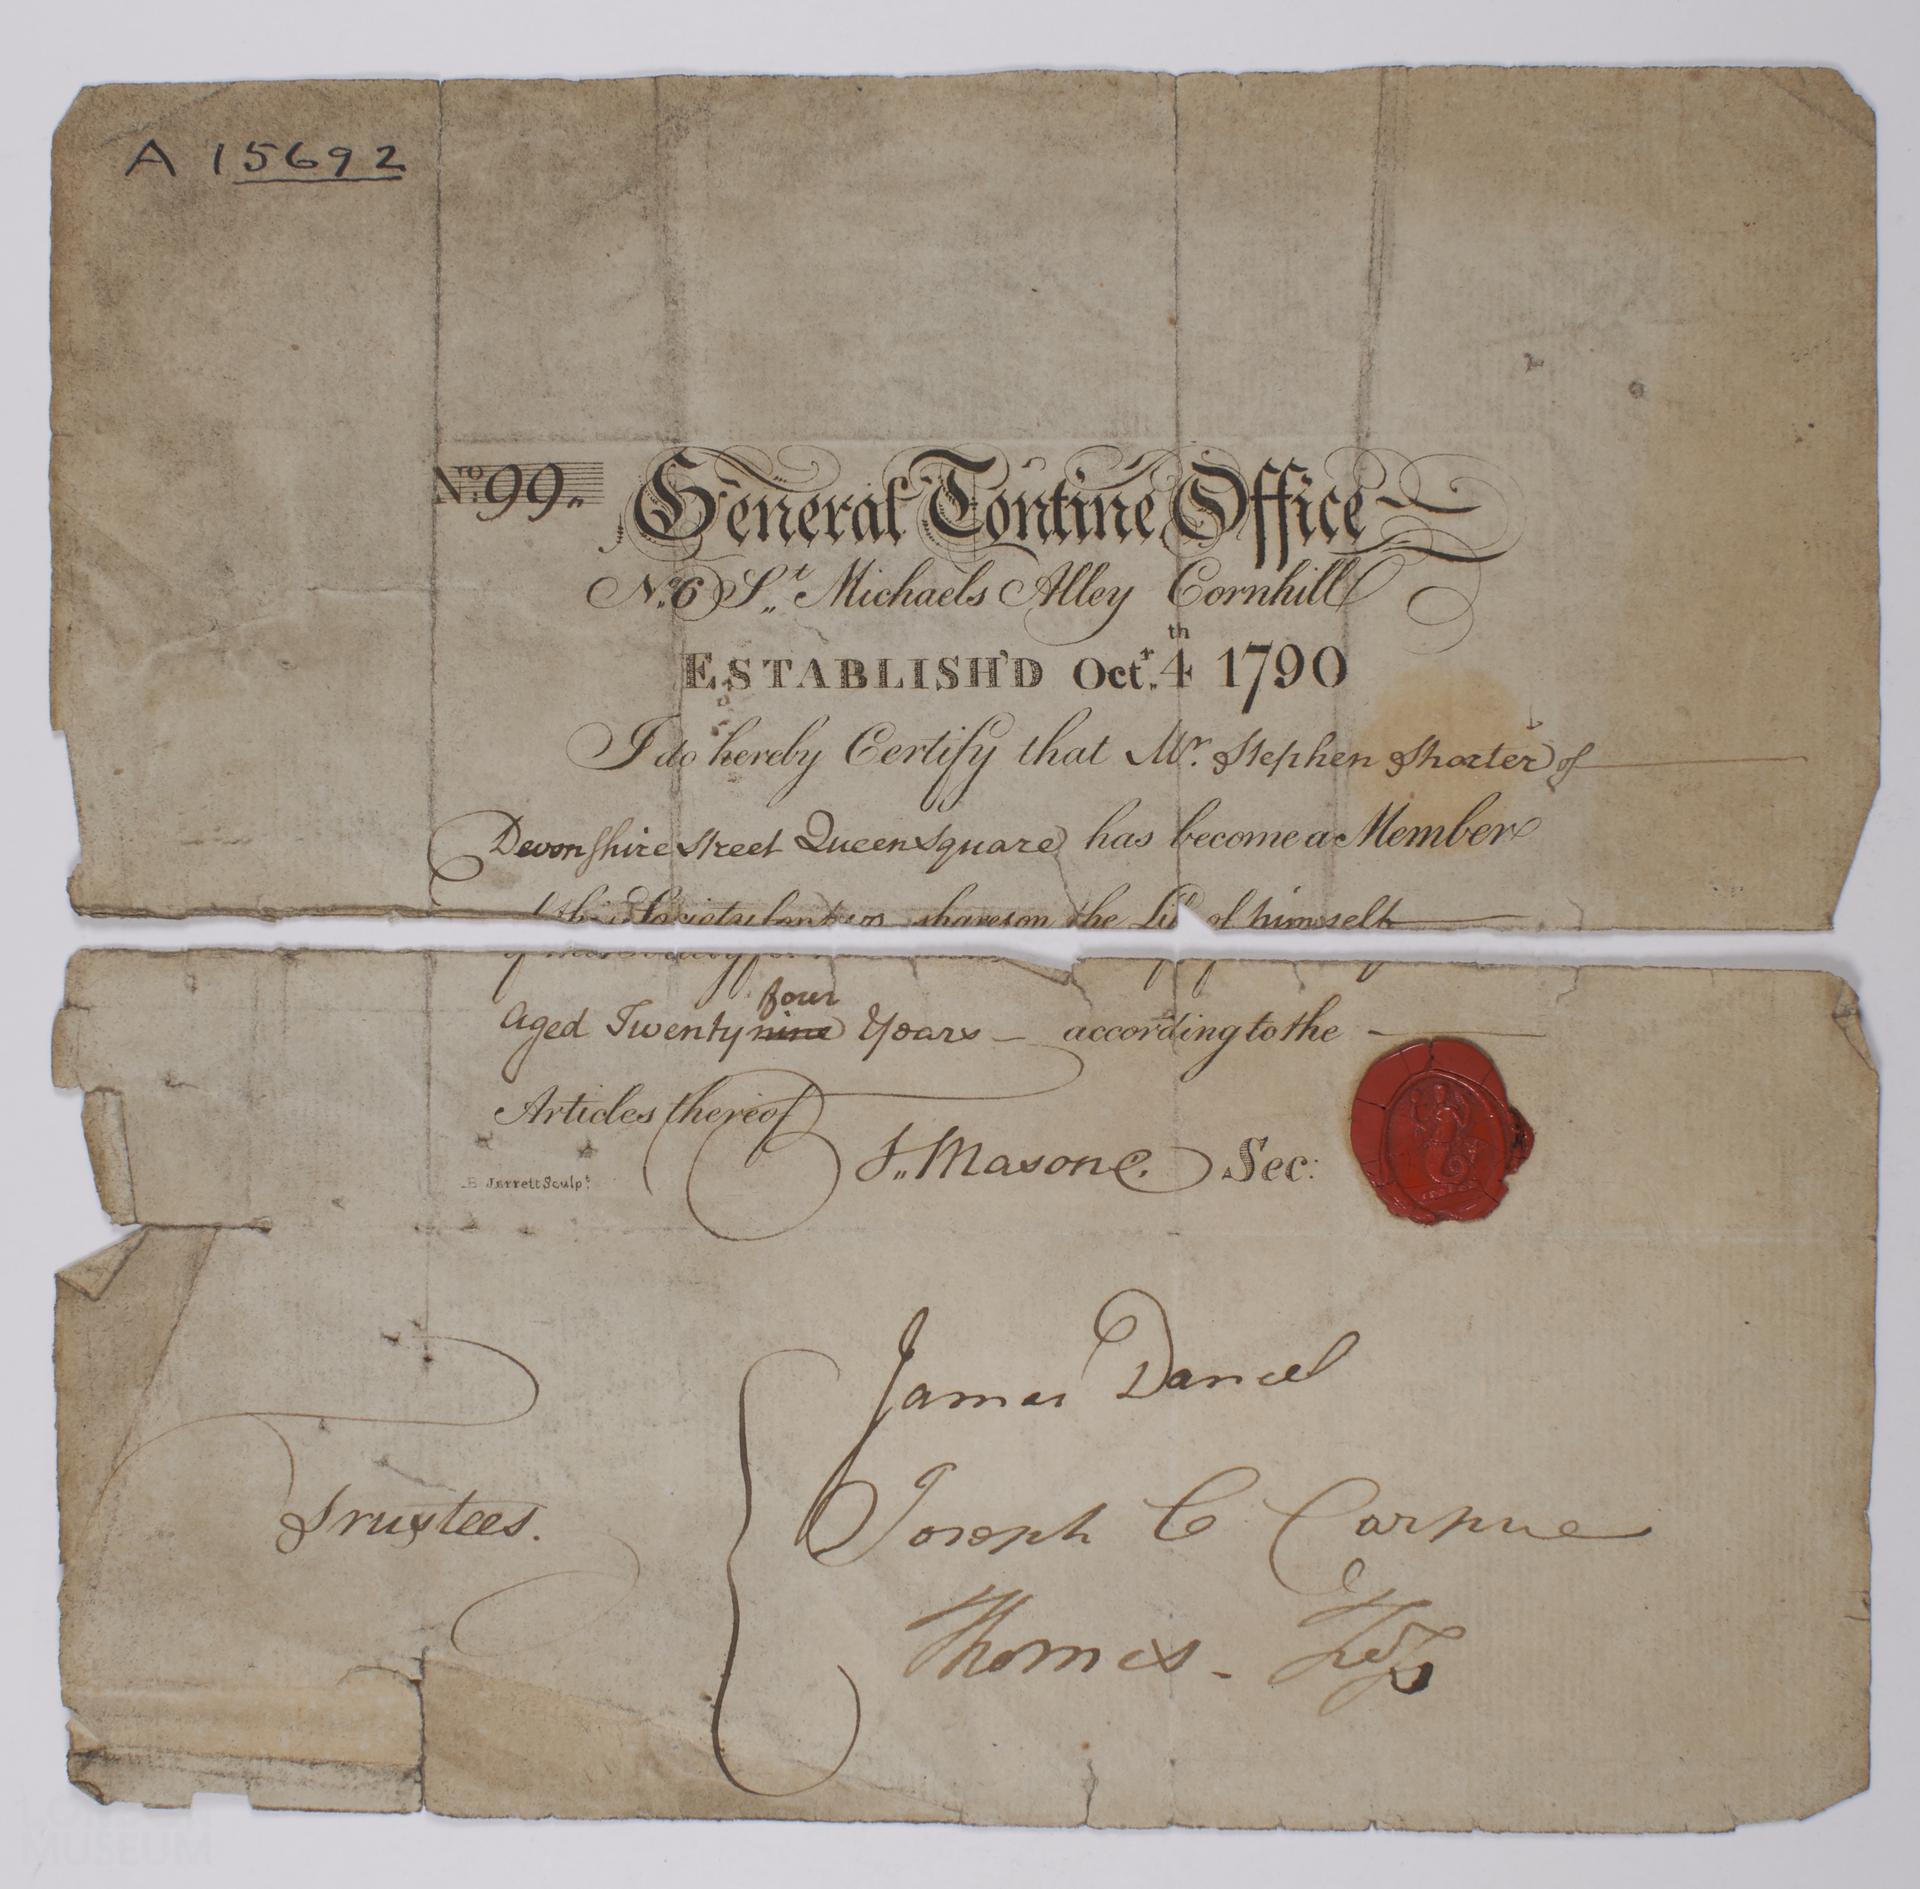 A 15692
No. 99
General Tontine Office
No. 6 St. Michaels Alley Cornhill
ESTABLISH'D Octr. 4th 1790
I do hereby Certify that Mr. Stephen Shorter of
Devonshire Street Queen Square has become a Member
of this Society for two shares on the Life of himself
four
Aged Twenty nine Years according to the
Articles thereof
J. Mason Sec:
B Jarrett Sculpt.
James Daniel
Trustees.
Joseph C Carpue
Thomas
LONDON
MUSEUM